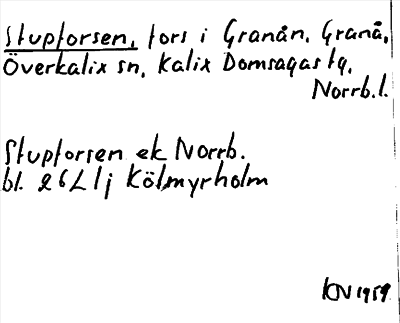 Stupforsen, fors i Granån, Granå,
Överkalix sn, Kalix Domsagas tg,
Norrb.l.
Stupforsen ek Norrb.
bl. 26L1j Kölmyrholm
KN 1959